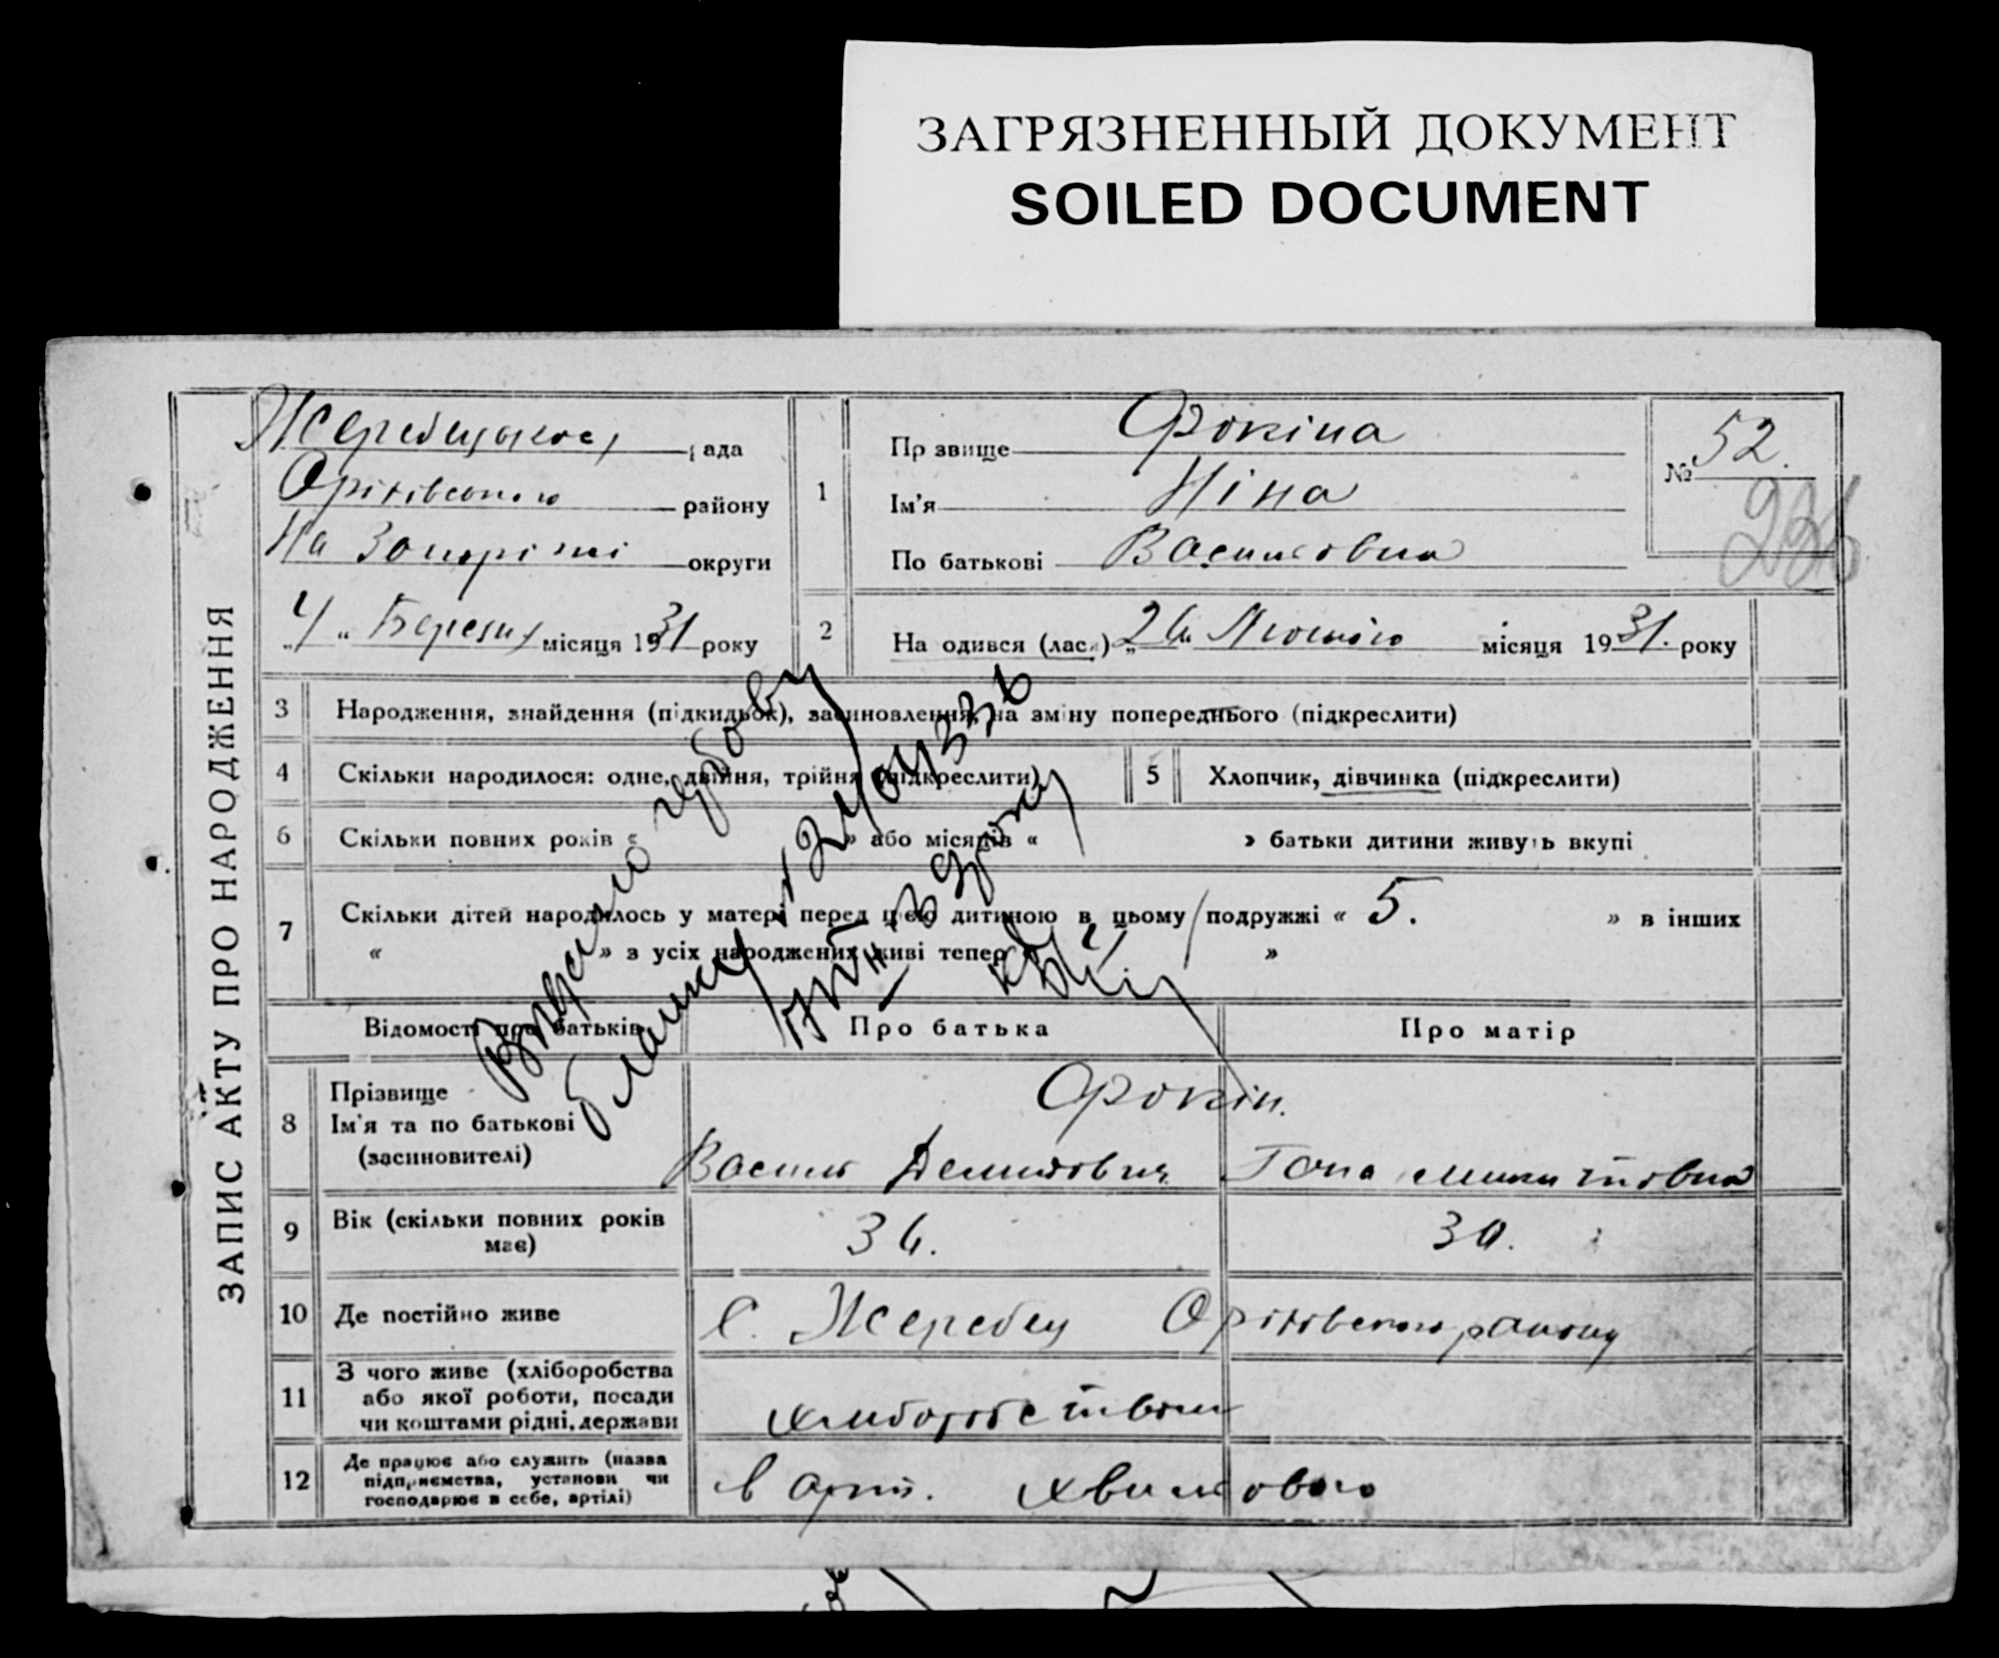 ЗАГРЯЗНЕННЫЙ ДОКУМЕНТ
SOILED DOCUMENT
ЗАПИС АКТУ ПРО НАРОДЖЕННЯ
Жеребецької рада
Оріхівського району
На Запоріжжі округи
„4“ Березня місяця 1931 року
1
Прізвище Фокіна
Ім'я Ніна
По батькові Василовна
№ 52.
236
2 На одився (лась) „26 Лютого місяця 1931. року
3 Народження, знайдення (підкидьок), засиновлення, на зміну попереднього (підкреслити)
4 Скільки народилося: одне, двійня, трійня (підкреслити)
5 Хлопчик, дівчинка (підкреслити)
6 Скільки повних років « » або місяців « » батьки дитини живуть вкупі
7 Скільки дітей народилось у матері перед цією дитиною в цьому подружжі « 5. » в інших
« » з усіх народжених живі тепер « »
Відомості про батьків
Про батька
Про матір
8 Прізвище
Ім'я та по батькові
(засиновителі)
Фокін.
Василь Демидович
Микитовна
9 Вік (скільки повних років
має)
36.
30.
10 Де постійно живе
с. Жеребец Оріхівського району
11 З чого живе (хліборобства
або якої роботи, посади
чи коштами рідні, держави
хліборобством
12 Де працює або служить (назва
підприємства, установи чи
господарює в себе, артілі)
в арт.